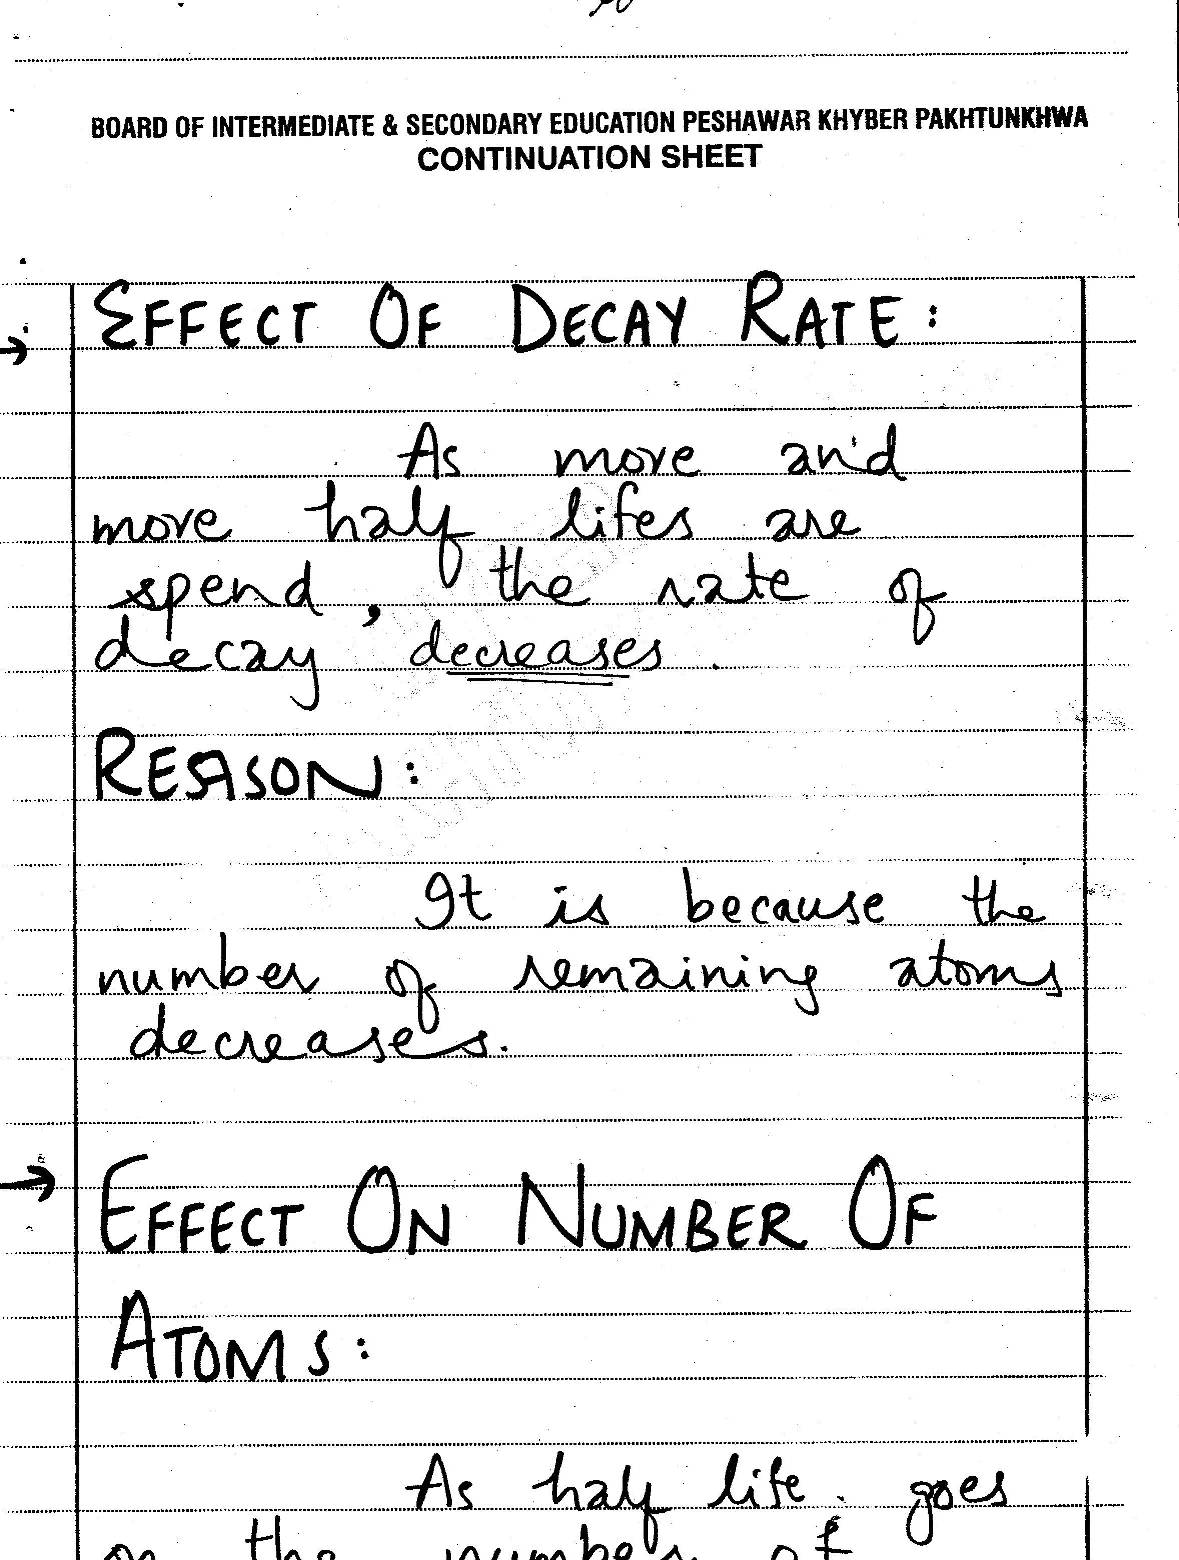 BOARD OF INTERMEDIATE & SECONDARY EDUCATION PESHAWAR KHYBER PAKHTUNKHWA
CONTINUATION SHEET
EFFECT OF DECAY RATE:
As more and
more half lifes are
spend, the rate of
decay decreases.
REASON:
It is because the
number of remaining atoms
decreases.
→ EFFECT ON NUMBER OF
ATOMS:
As half life. goes
on the number of